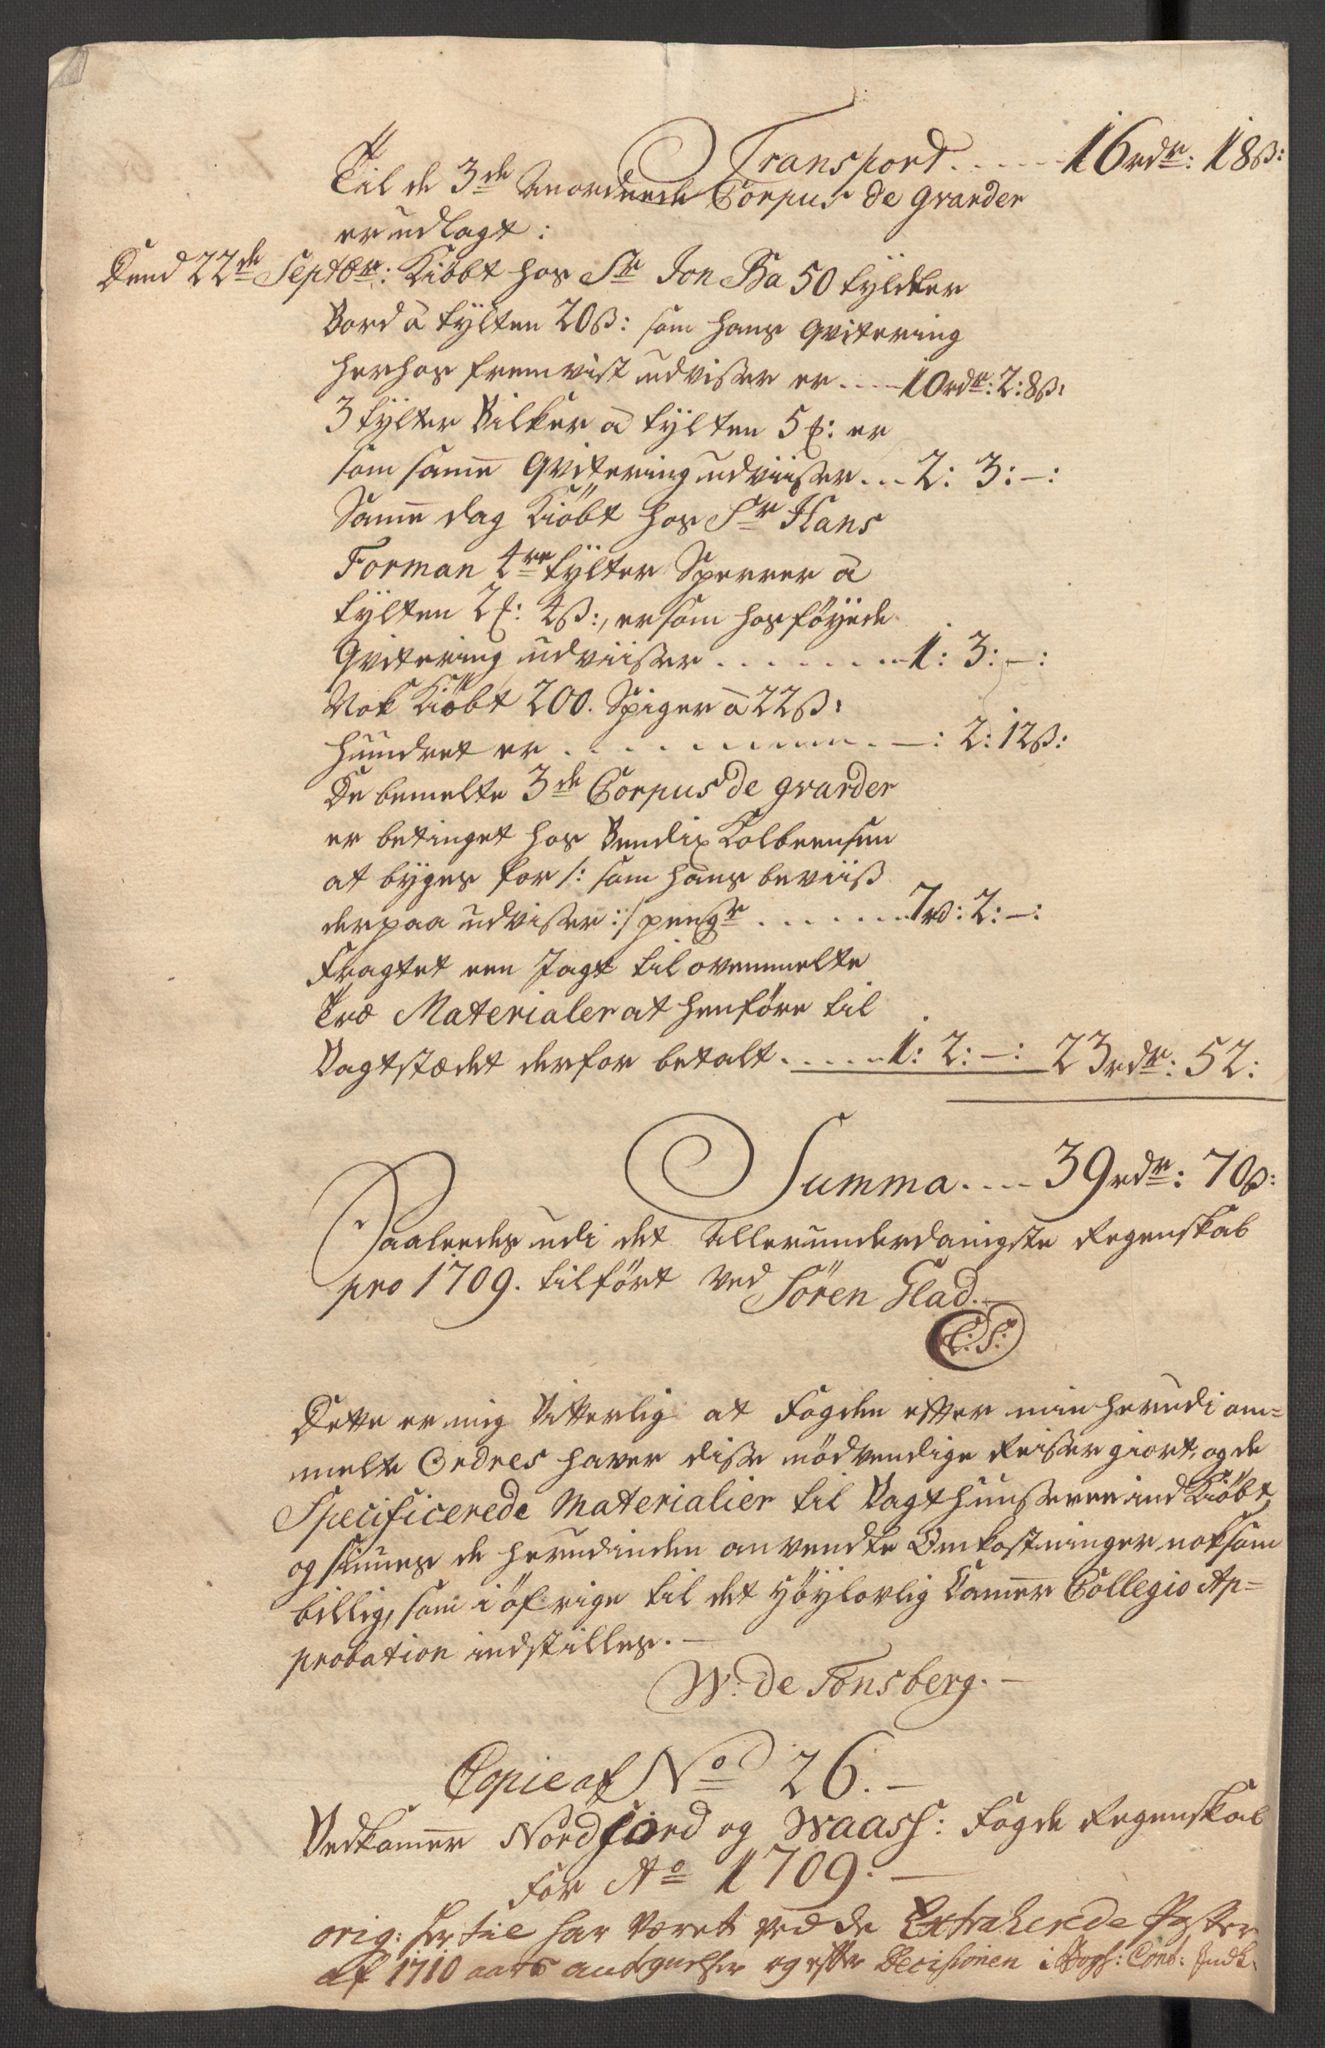 Transport . . . . . 16 rdr: 18ß:
Til de 3de Anordnede Corpus de gvarder
er udlagt:
Dend 22de Septbr: Kiöbt hos Sr Jon Ba 50 tylter
Bord à tylten 20ß: som hans Qvitering
herhos fremvist udvisser er . . . . 10 rdr: 2: 8ß:
3 tylter Bilker à tylten 5 : er
som same Qvitering udviisser . . . 2: 3: –:
Same dag Kiöbt hos Sr Hans
Forman 4re tylter Sperrer à
tylten 2 : 4ß:, er som hosföyede
Qvitering udviisser . . . . . . . . . 1: 3: –:
Nok Kiöbt 200. Spiger à 22ß:
hundret er . . . . . . . . . . . –: 2: 12ß:
De bemelte 3de Corpus de gvarder
er betinget hos Bendix Kolbeensen
at byges for /: som hans beviiß
derpaa udvisser :/ pengr . . . . . . . 7 rd: 2: –:
Fragtet een Jagt til ovenmelte
Træ Materialer at henföre til
Vagtstædet derfor betalt . . . . . . 1: 2: –: 23 rdr: 52:
Summa . . . . 39 rdr: 70ß:
Saaleedes udi det Allerunderdanigste Regenskab
pro 1709. tilfört ved Sören Glad. –
(L: S:)
Dette er mig Vitterlig at Fogden efter min herudi om=
melte Ordres haver disse nödvendige Reisser giort, og de
Specificerede Materialier til Vagthuusserne ind Kiöbt,
og siunes de herudinden anvendte Omkostninger noksom
billig, som i öfrige til det Höylovlig Camer Collegio Ap=
probation indstilles. –
W: de Tonsberg. –
Copie af No 26. –
Vedkomer Nordfiord og Waasß: Fogde Regenskab
for Ao 1709: –
orig: hertil har været ved de Extraherede Poster
af 1710 aars og efter Decisionen i